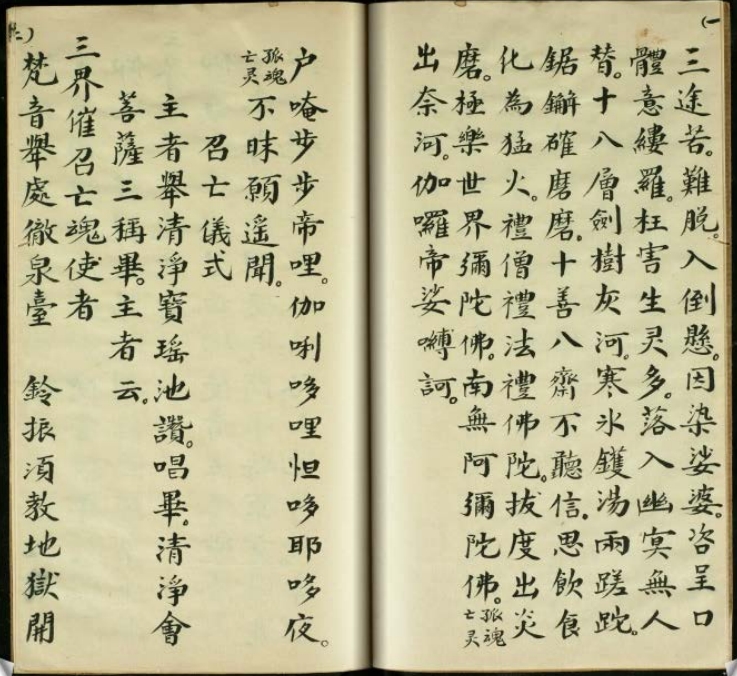 (一
三途苦。難脱。入倒懸。因染娑婆。咨呈口
體意縷羅。枉害生灵多。落入幽冥無人
替。十八層劍樹灰河。寒氷鑊湯兩蹉跎。
鋸鐦確磨磨。十善八齋不聽信。思飲食
化為猛火。禮僧禮法禮佛陀。拔度出炎
磨。極樂世界彌陀佛。南無阿彌陀佛。孤魂亡灵
出奈河。伽囉帝娑嚩訶。
二)
户唵步步帝哩。伽唎哆哩怛哆耶哆夜。
孤魂亡灵不昧願遥聞。
召亡儀式
主者舉清淨寶瑶池讚。唱畢。清淨會
菩薩三稱畢。主者云。
三界催召亡魂使者
梵音舉處徹泉臺 鈴振須教地獄開